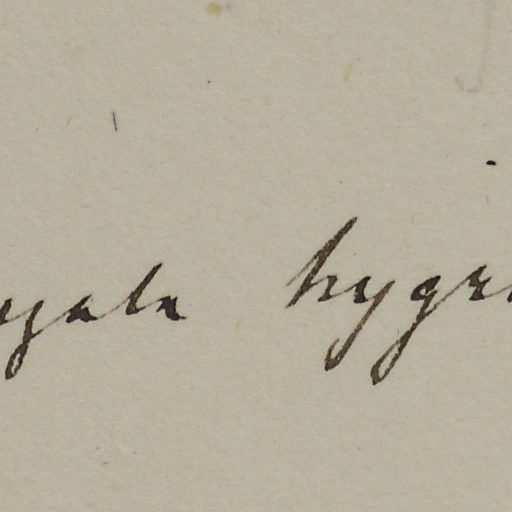 yala hygr